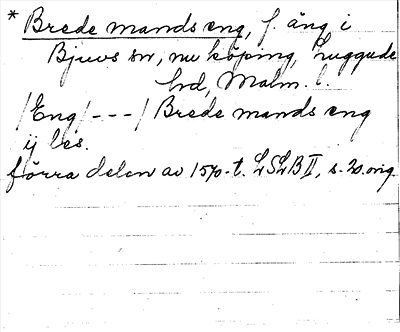 * Brede mands eng, f. äng i
Bjuvs sn, nu köping, Luggude
hd, Malm. l.
/Eng/ - - - / Brede mands eng
ij les.
förra delen av 1570-t. LSLB II, s. 20. orig.